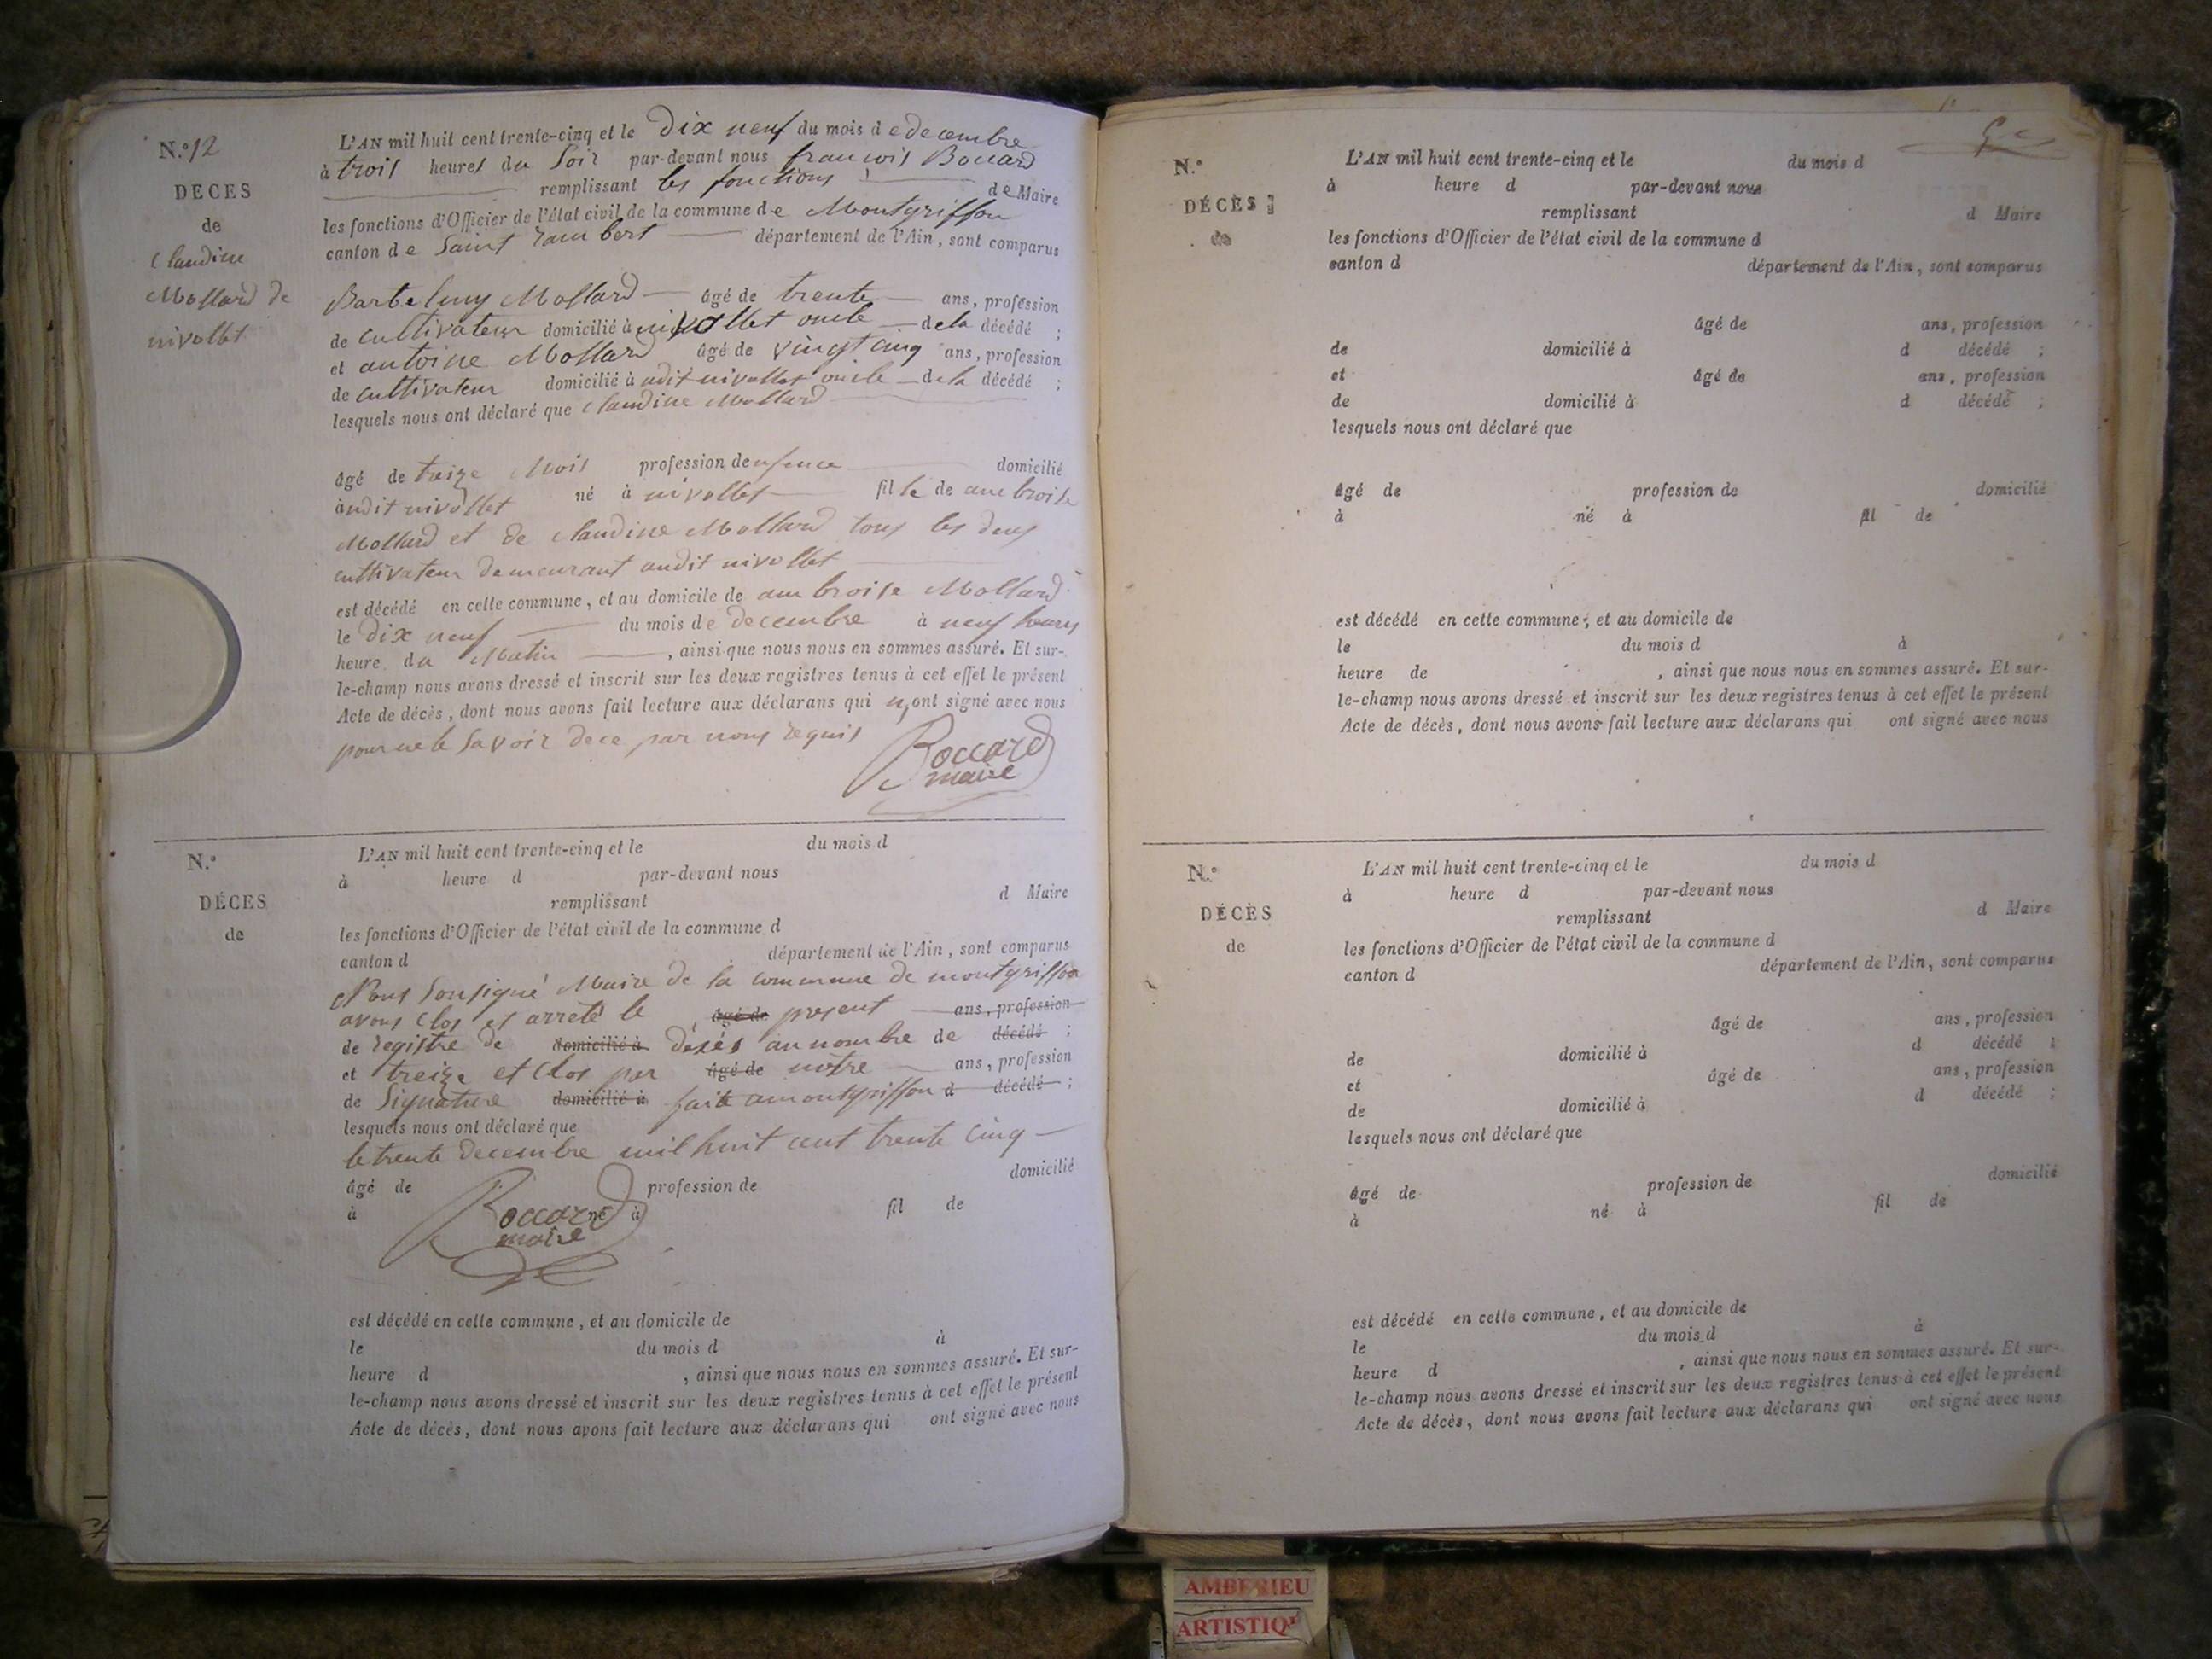 N.º 12
DÉCES
de
Claudine
Mollard de
nivollet
L'AN mil huit cent trente-cinq et le Dix neuf du mois de decembre
à trois heures du Soir par-devant nous françois Boccard
remplissant les fonctions de Maire
les fonctions d'Officier de l'état civil de la commune de Montgriffon
canton de Saint rambert département de l'Ain, sont comparus
Bartelmy Mollard âgé de trente ans, profession
de cultivateur domicilié à nivollet oncle de la décédé ;
et antoine Mollard âgé de vingt cinq ans, profession
de cultivateur domicilié à udit nivollet oncle de la décédé ;
lesquels nous ont déclaré que Claudine Mollard
âgé de treize Mois profession de enfence domicilié
àudit nivollet né à nivollet fille de ambroise
Mollard et de Claudine Mollard tous les deus
cultivateur demeurant audit nivollet
est décédé en cette commune, et au domicile de ambroise Mollard
le dix neuf du mois de decembre à neuf heures
heure du Matin , ainsi que nous nous en sommes assuré. Et sur-
le-champ nous avons dressé et inscrit sur les deux registres tenus à cet effet le présent
Acte de décès, dont nous avons fait lecture aux déclarans qui n'ont signé avec nous
pour ne le Savoir de ce par nous requis
Boccard
maire
N.º
DÉCES
de
L'AN mil huit cent trente-cinq et le du mois d
à heure d par-devant nous
remplissant d Maire
les fonctions d'Officier de l'état civil de la commune d
canton d département de l'Ain, sont comparus
Nous Sousigné Maire de la commune de montgriffon
avons Clos et arreté le âgé de present ans, profession
de registre de domicilié à désés au nombre de décédé ;
et treize et Clos par âgé de notre ans, profession
de Signature domicilié à fait a montgriffon d décédé ;
lesquels nous ont déclaré que
le trente decembre mil huit cent trente Cinq
âgé de profession de domicilié
à né à fil de
Boccard
maire
est décédé en cette commune, et au domicile de
le du mois d à
heure d , ainsi que nous nous en sommes assuré. Et sur-
le-champ nous avons dressé et inscrit sur les deux registres tenus à cet effet le présent
Acte de décès, dont nous avons fait lecture aux déclarans qui ont signé avec nous
N.º
DÉCÈS
de
L'AN mil huit cent trente-cinq et le du mois d
à heure d par-devant nous
remplissant d Maire
les fonctions d'Officier de l'état civil de la commune d
canton d département de l'Ain, sont comparus
âgé de ans, profession
de domicilié à d décédé ;
et âgé de ans, profession
de domicilié à d décédé ;
lesquels nous ont déclaré que
âgé de profession de domicilié
à né à fil de
est décédé en cette commune, et au domicile de
le du mois d à
heure de , ainsi que nous nous en sommes assuré. Et sur-
le-champ nous avons dressé et inscrit sur les deux registres tenus à cet effet le présent
Acte de décès, dont nous avons fait lecture aux déclarans qui ont signé avec nous
N.º
DÉCÈS
de
L'AN mil huit cent trente-cinq et le du mois d
à heure d par-devant nous
remplissant d Maire
les fonctions d'Officier de l'état civil de la commune d
canton d département de l'Ain, sont comparus
âgé de ans, profession
de domicilié à d décédé ;
et âgé de ans, profession
de domicilié à d décédé ;
lesquels nous ont déclaré que
âgé de profession de domicilié
à né à fil de
est décédé en cette commune, et au domicile de
le du mois d à
heure d , ainsi que nous nous en sommes assuré. Et sur-
le-champ nous avons dressé et inscrit sur les deux registres tenus à cet effet le présent
Acte de décès, dont nous avons fait lecture aux déclarans qui ont signé avec nous
AMBERIEU
ARTISTIQ